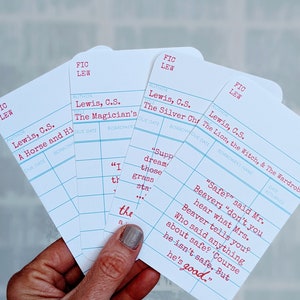 FIC
LEW
Lewis, C.S.
A Horse and Hi
FIC
LEW
Lewis, C.S.
The Magician's
"I
the
FIC
LEW
Lewis, C.S.
The Silver Ch
"Supp
dream
those
gras
sta
FIC
LEW
Lewis, C.S.
The Lion, the Witch, & The Wardro
"Safe?" said Mr.
Beaver; "don't you
hear what Mrs.
Beaver tells you?
Who said anything
about safe? 'Course
he isn't safe. But
he's good."